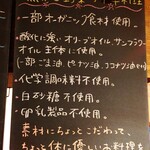 ・一部オーガニック食材使用。
・酸化に強いオリーブオイル、サンフラワー
オイル主体に使用。
(一部ごま油、ココナツオイル)
・化学調味料不使用。
・白砂糖不使用。
・卵、乳製品不使用。
素材にちょっとこだわって、
ちょっと体に優しいお料理を